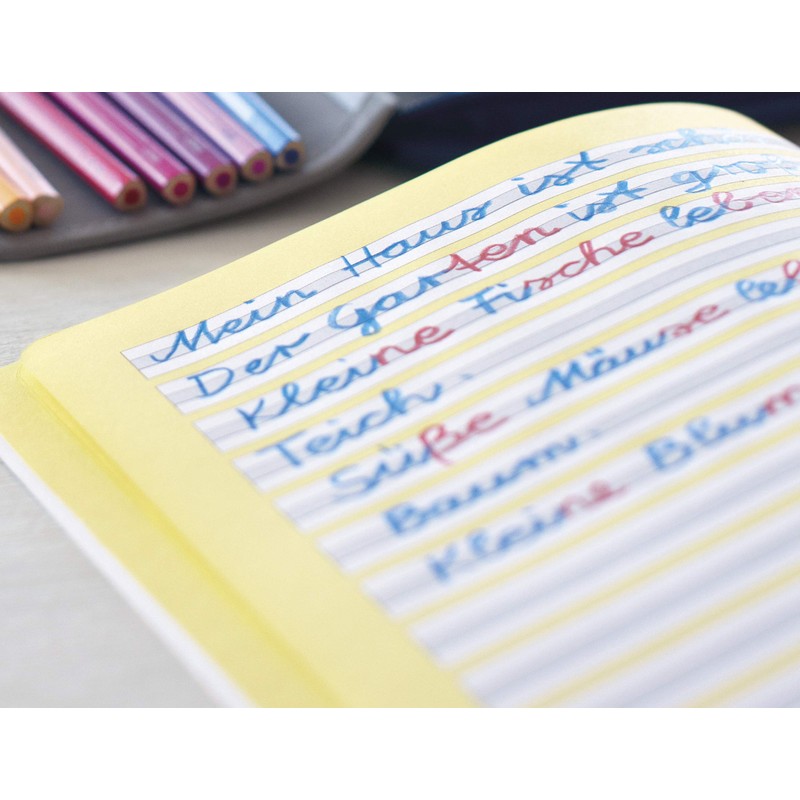 Mein Haus ist
Der Garten ist
Kleine Fische
Teich.
Süße Mäuse
Baum.
Kleine